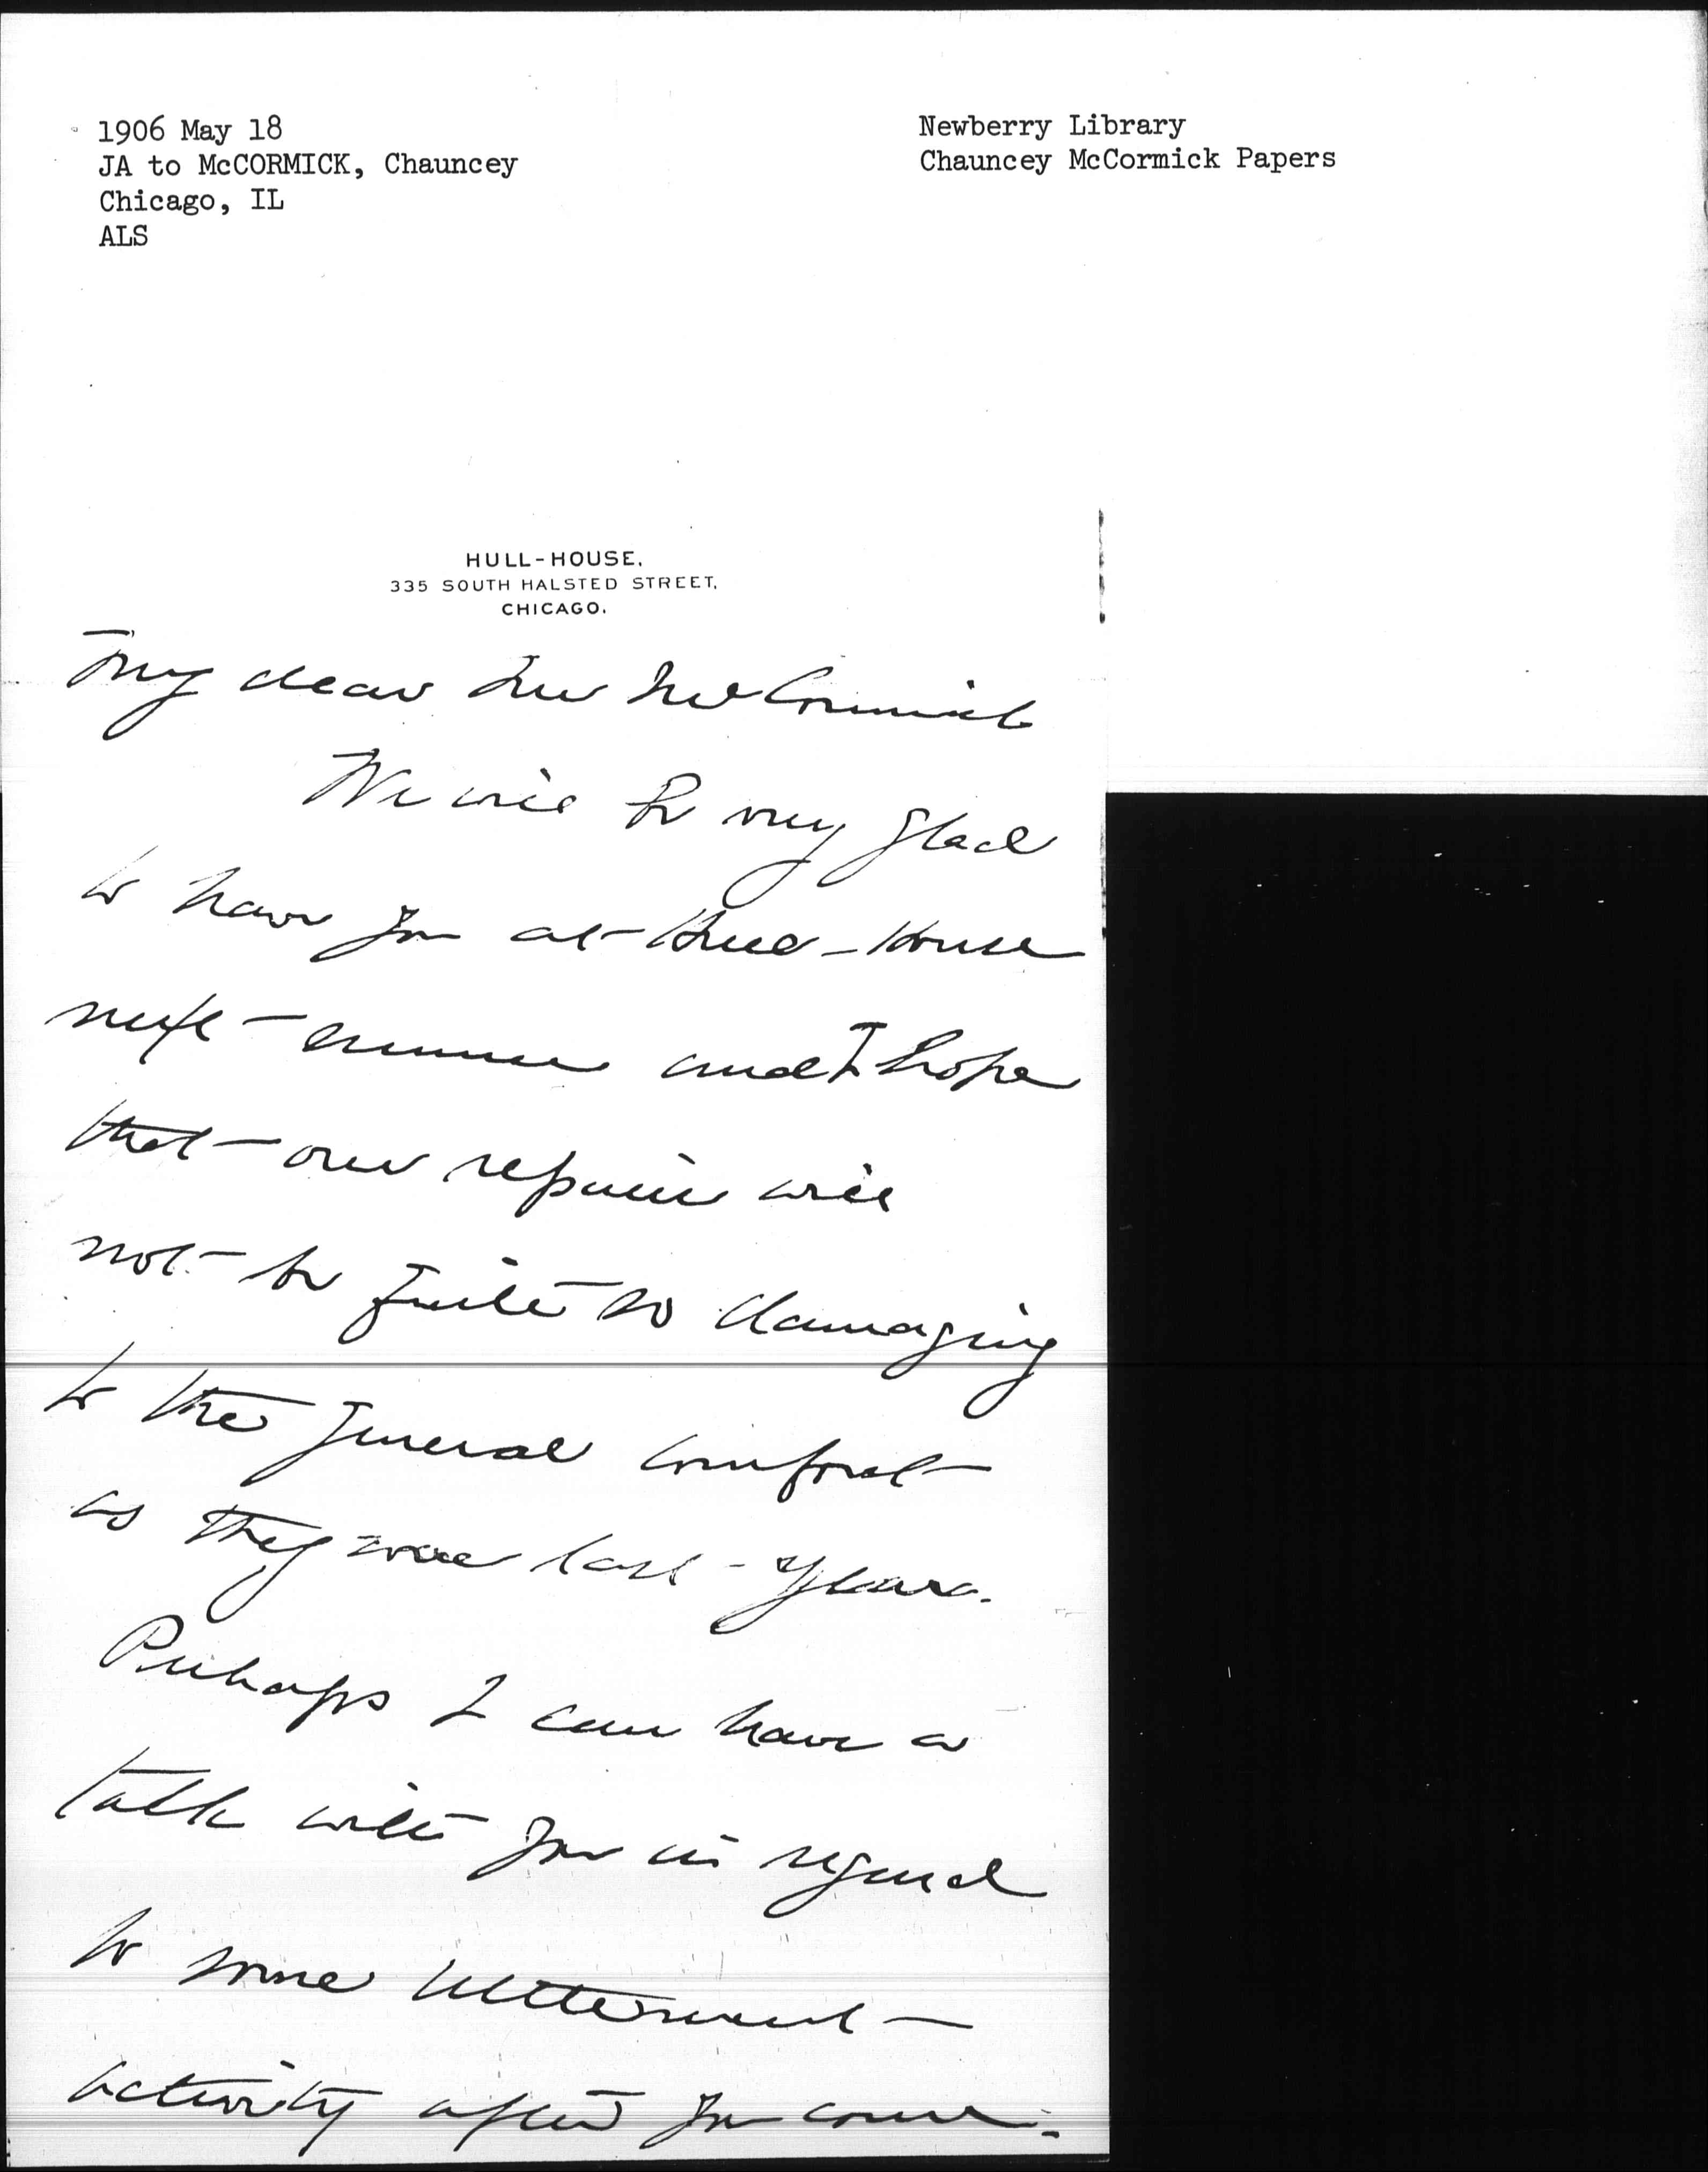 1906 May 18
JA to McCORMICK, Chauncey
Chicago, IL
ALS
Newberry Library
Chauncey McCormick Papers
HULL-HOUSE,
335 SOUTH HALSTED STREET,
CHICAGO.
My dear Mr McCormick
We will be very glad
to have you at Hull-House
next summer and I hope
that our repairs will
not be quite so damaging
to the general comfort
as they were last year.
Perhaps I can have a
talk with you in regard
to some betterment
activity after you come.